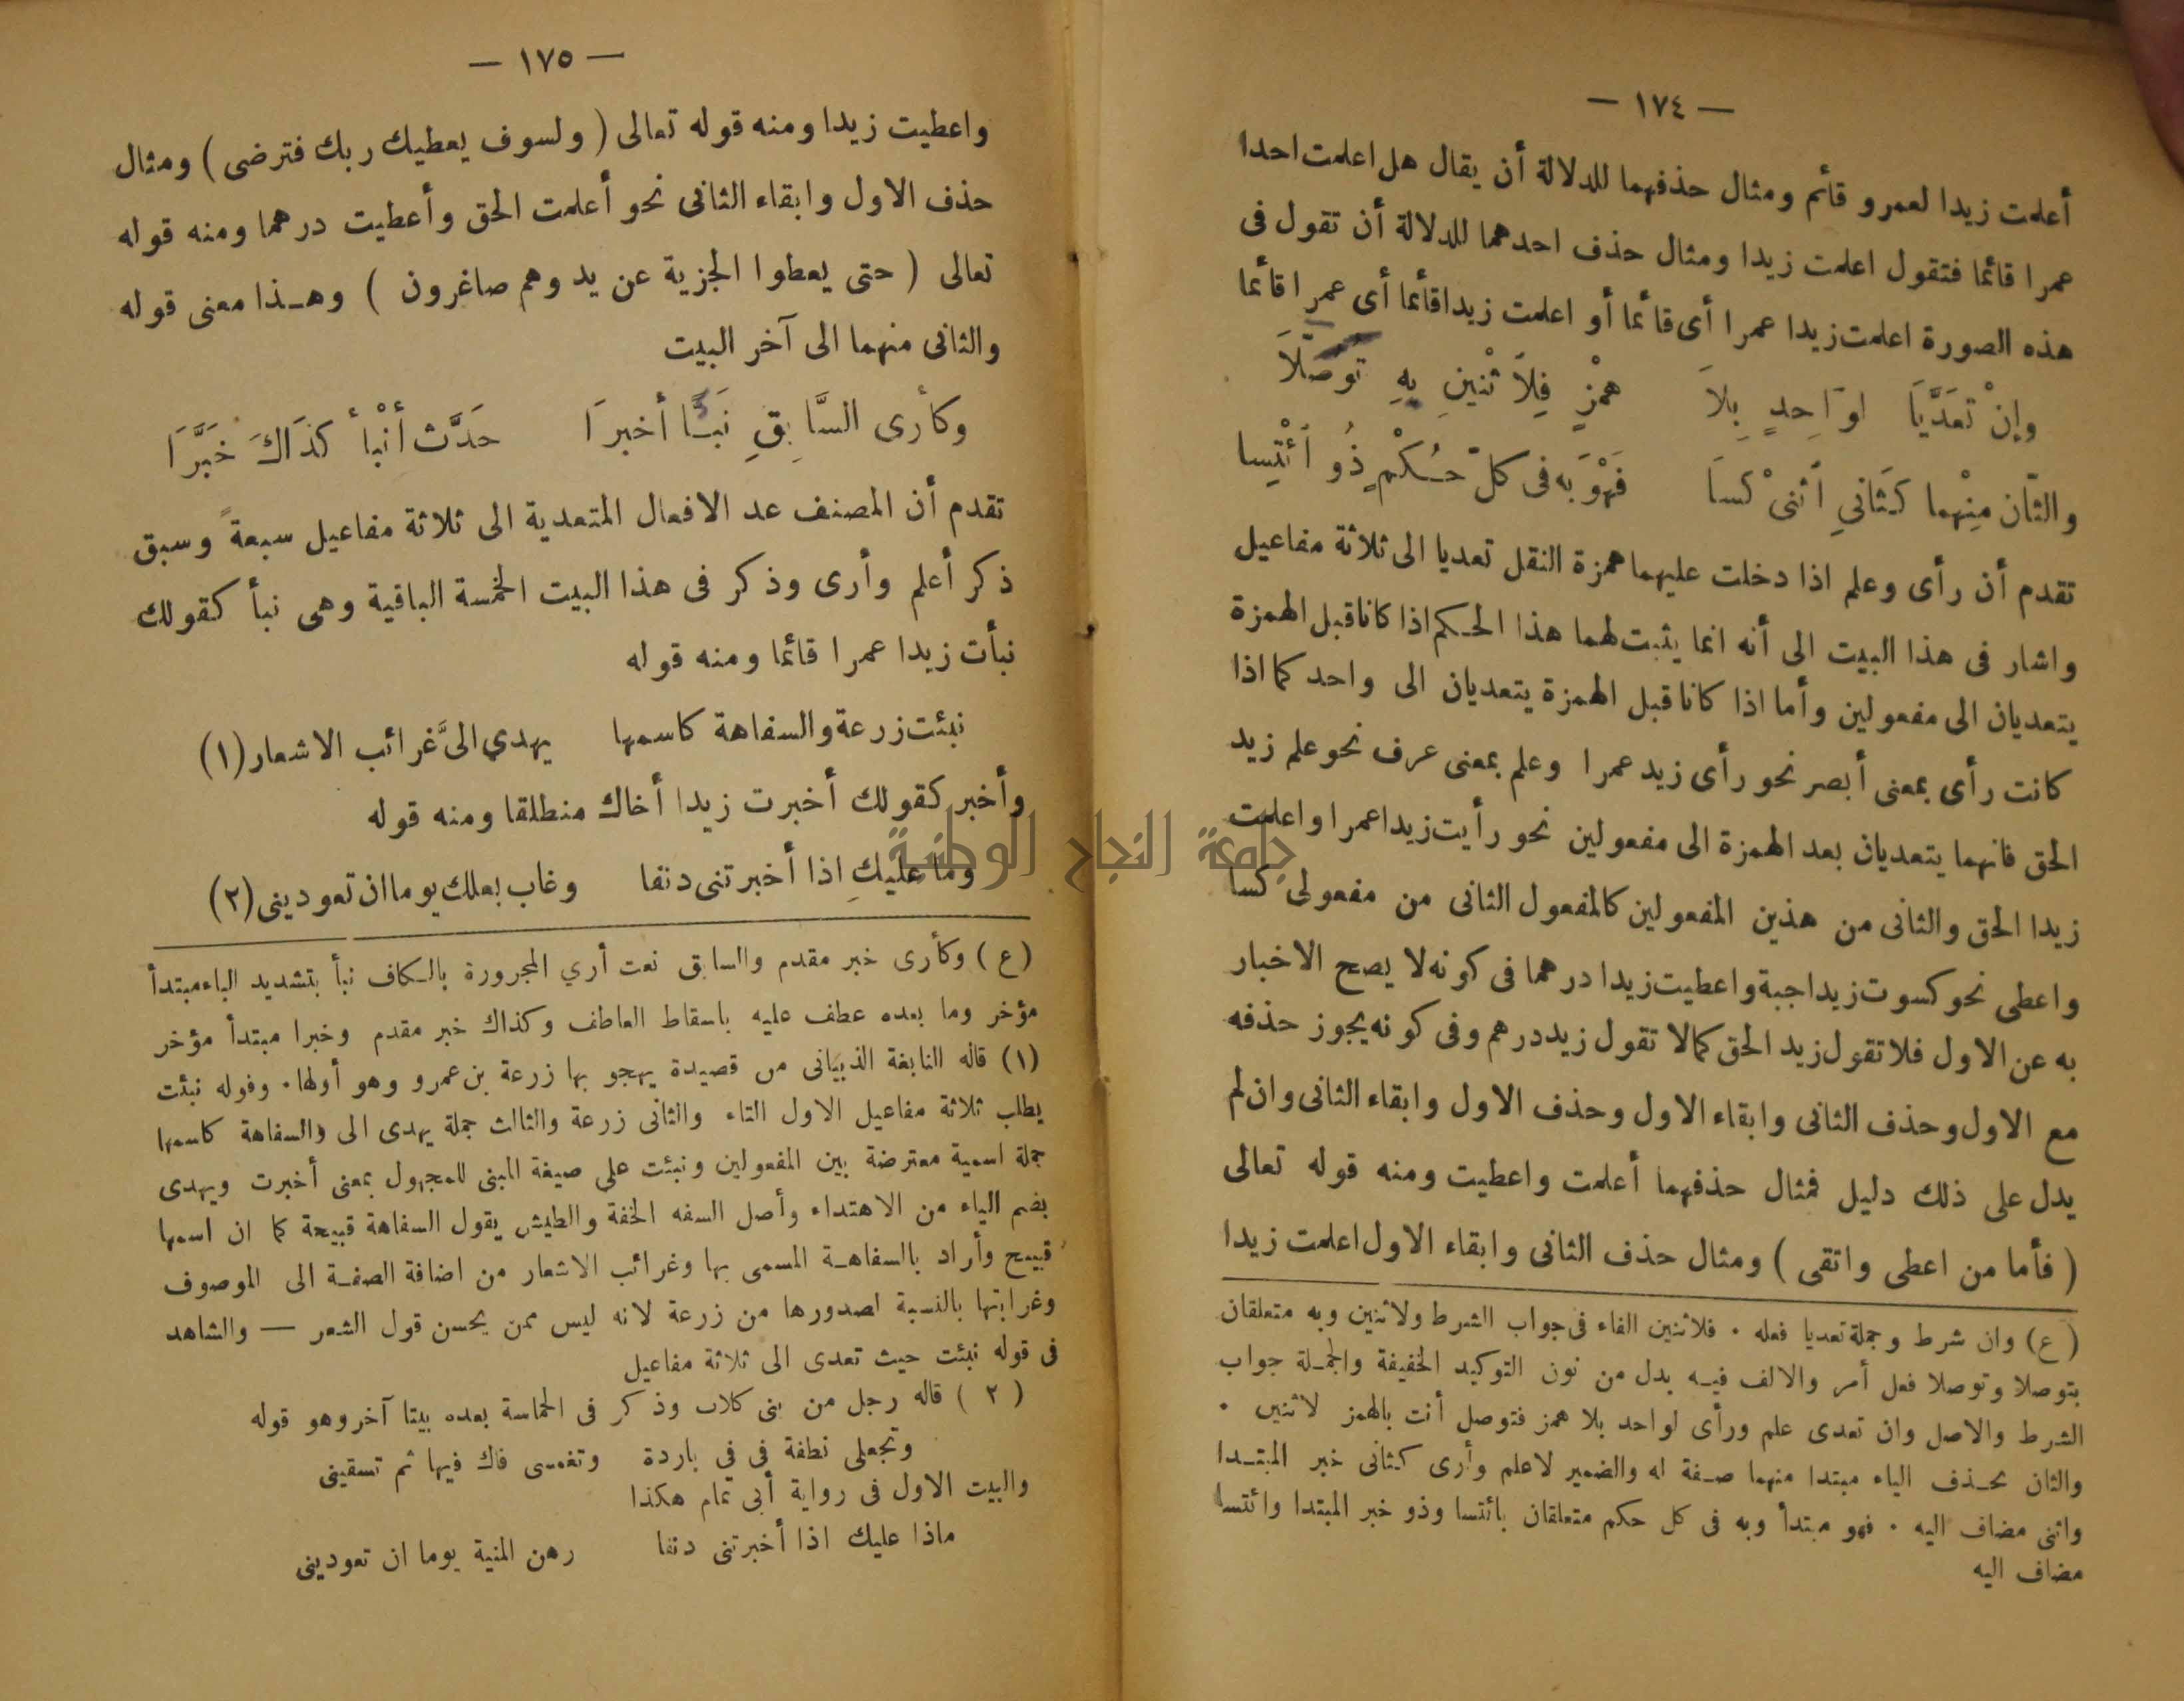 — ١٧٤ —
أعلمت زيدا لعمرو قائم ومثال حذفهما للدلالة أن يقال هل اعلمت احدا
عمرا قائما فتقول اعلمت زيدا ومثال حذف احدهما للدلالة أن تقول فى
هذه الصورة اعلمت زيدا عمرا أى قائما أو اعلمت زيدا قائما أى عمرا قائما
وإنْ تعَدَّيَا لوَاحِدٍ بِلاَ همْزٍ فِلاَ ثْنينِ بِهِ توَصّلاَ
والثّان مِنْهما كَثَانيِ اَثنىْ كسَا فَهْوَ بَه فى كلّ حُكْمٍ ذُو اَئْتِسا
تقدم أن رأى وعلم اذا دخلت عليهما همزة النقل تعديا الى ثلاثة مفاعيل
واشار فى هذا البيت الى أنه انما يثبت لهما هذا الحكم اذا كانا قبل الهمزة
يتعديان الى مفعولين وأما اذا كانا قبل الهمزة يتعديان الى واحد كما اذا
كانت رأى بمعنى أبصر نحو رأى زيد عمرا وعلم بمعنى عرف نحو علم زيد
الحق فانهما يتعديان بعد الهمزة الى مفعولين نحو رأيت زيدا عمرا واعلمت
زيدا الحق والثانى من هذين المفعولين كالمفعول الثانى من مفعولى كسا
واعطى نحو كسوت زيدا جبة واعطيت زيدا درهما فى كونه لا يصح الاخبار
به عن الاول فلا تقول زيد الحق كما لا تقول زيد درهم وفى كونه يجوز حذفه
مع الاول وحذف الثانى وابقاء الاول وحذف الاول وابقاء الثانى وان لم
يدل على ذلك دليل فمثال حذفهما أعلمت واعطيت ومنه قوله تعالى
( فأما من اعطى واتقى ) ومثال حذف الثانى وابقاء الاول اعلمت زيدا
( ع ) وان شرط وجملة تعديا فعله . فلاثنين الفاء فى جواب الشرط ولاثنين وبه متعلقان
بتوصلا وتوصلا فعل أمر والالف فيه بدل من نون التوكيد الخفيفة والجملة جواب
الشرط والاصل وان تعدى علم ورأى لواحد بلا همز فتوصل أنت بالهمز لاثنين .
والثان بحذف الياء مبتدا منهما صفة له والضمير لاعلم وأرى كثانى خبر المبتدا
واثنى مضاف اليه . فهو مبتدأ وبه فى كل حكم متعلقان بائتسا وذو خبر المبتدا وائتسا
مضاف اليه
— ١٧٥ —
واعطيت زيدا ومنه قوله تعالى ( ولسوف يعطيك ربك فترضى ) ومثال
حذف الاول وابقاء الثانى نحو أعلمت الحق وأعطيت درهما ومنه قوله
تعالى ( حتى يعطوا الجزية عن يد وهم صاغرون ) وهذا معنى قوله
والثانى منهما الى آخر البيت
وكأرى السَّابِقِ نَبَّا أخبرَا حَدَّث أنْبأ كذَاكَ خبَّرَا
تقدم أن المصنف عد الافعال المتعدية الى ثلاثة مفاعيل سبعةً وسبق
ذكر أعلم وأرى وذكر فى هذا البيت الخمسة الباقية وهى نبأ كقولك
نبأت زيدا عمرا قائما ومنه قوله
نبئت زرعة والسفاهة كاسمها يهدي الىَّ غرائب الاشعار (١)
وأخبر كقولك أخبرت زيدا أخاك منطلقا ومنه قوله
وما عليكِ اذا أخبرتنى دنفا وغاب بعلك يوما ان تعودينى (٢)
( ع ) وكأرى خبر مقدم والسابق نعت أري المجرورة بالكاف نبأ بتشديد الباء مبتدأ
مؤخر وما بعده عطف عليه باسقاط العاطف وكذاك خبر مقدم وخبرا مبتدأ مؤخر
(١) قاله النابغة الذبيانى من قصيدة يهجو بها زرعة بن عمرو وهو أولها . وقوله نبئت
يطلب ثلاثة مفاعيل الاول التاء والثانى زرعة والثالث جملة يهدى الى والسفاهة كاسمها
جملة اسمية معترضة بين المفعولين ونبئت على صيغة المبنى للمجهول بمعنى أخبرت ويهدى
بضم الياء من الاهتداء وأصل السفه الخفة والطيش يقول السفاهة قبيحة كما ان اسمها
قبيح وأراد بالسفاهة المسمى بها وغرائب الاشعار من اضافة الصفة الى الموصوف
وغرابتها بالنسبة لصدورها من زرعة لانه ليس ممن يحسن قول الشعر — والشاهد
فى قوله نبئت حيث تعدى الى ثلاثة مفاعيل
( ٢ ) قاله رجل من بنى كلاب وذكر فى الحماسة بعده بيتا آخر وهو قوله
وتجعلى نطفة فى فى باردة وتغمسى فاك فيها ثم تسقينى
والبيت الاول فى رواية أبى تمام هكذا
ماذا عليك اذا أخبرتنى دنفا رهن المنية يوما ان تعودينى
جامعة النجاح الوطنية